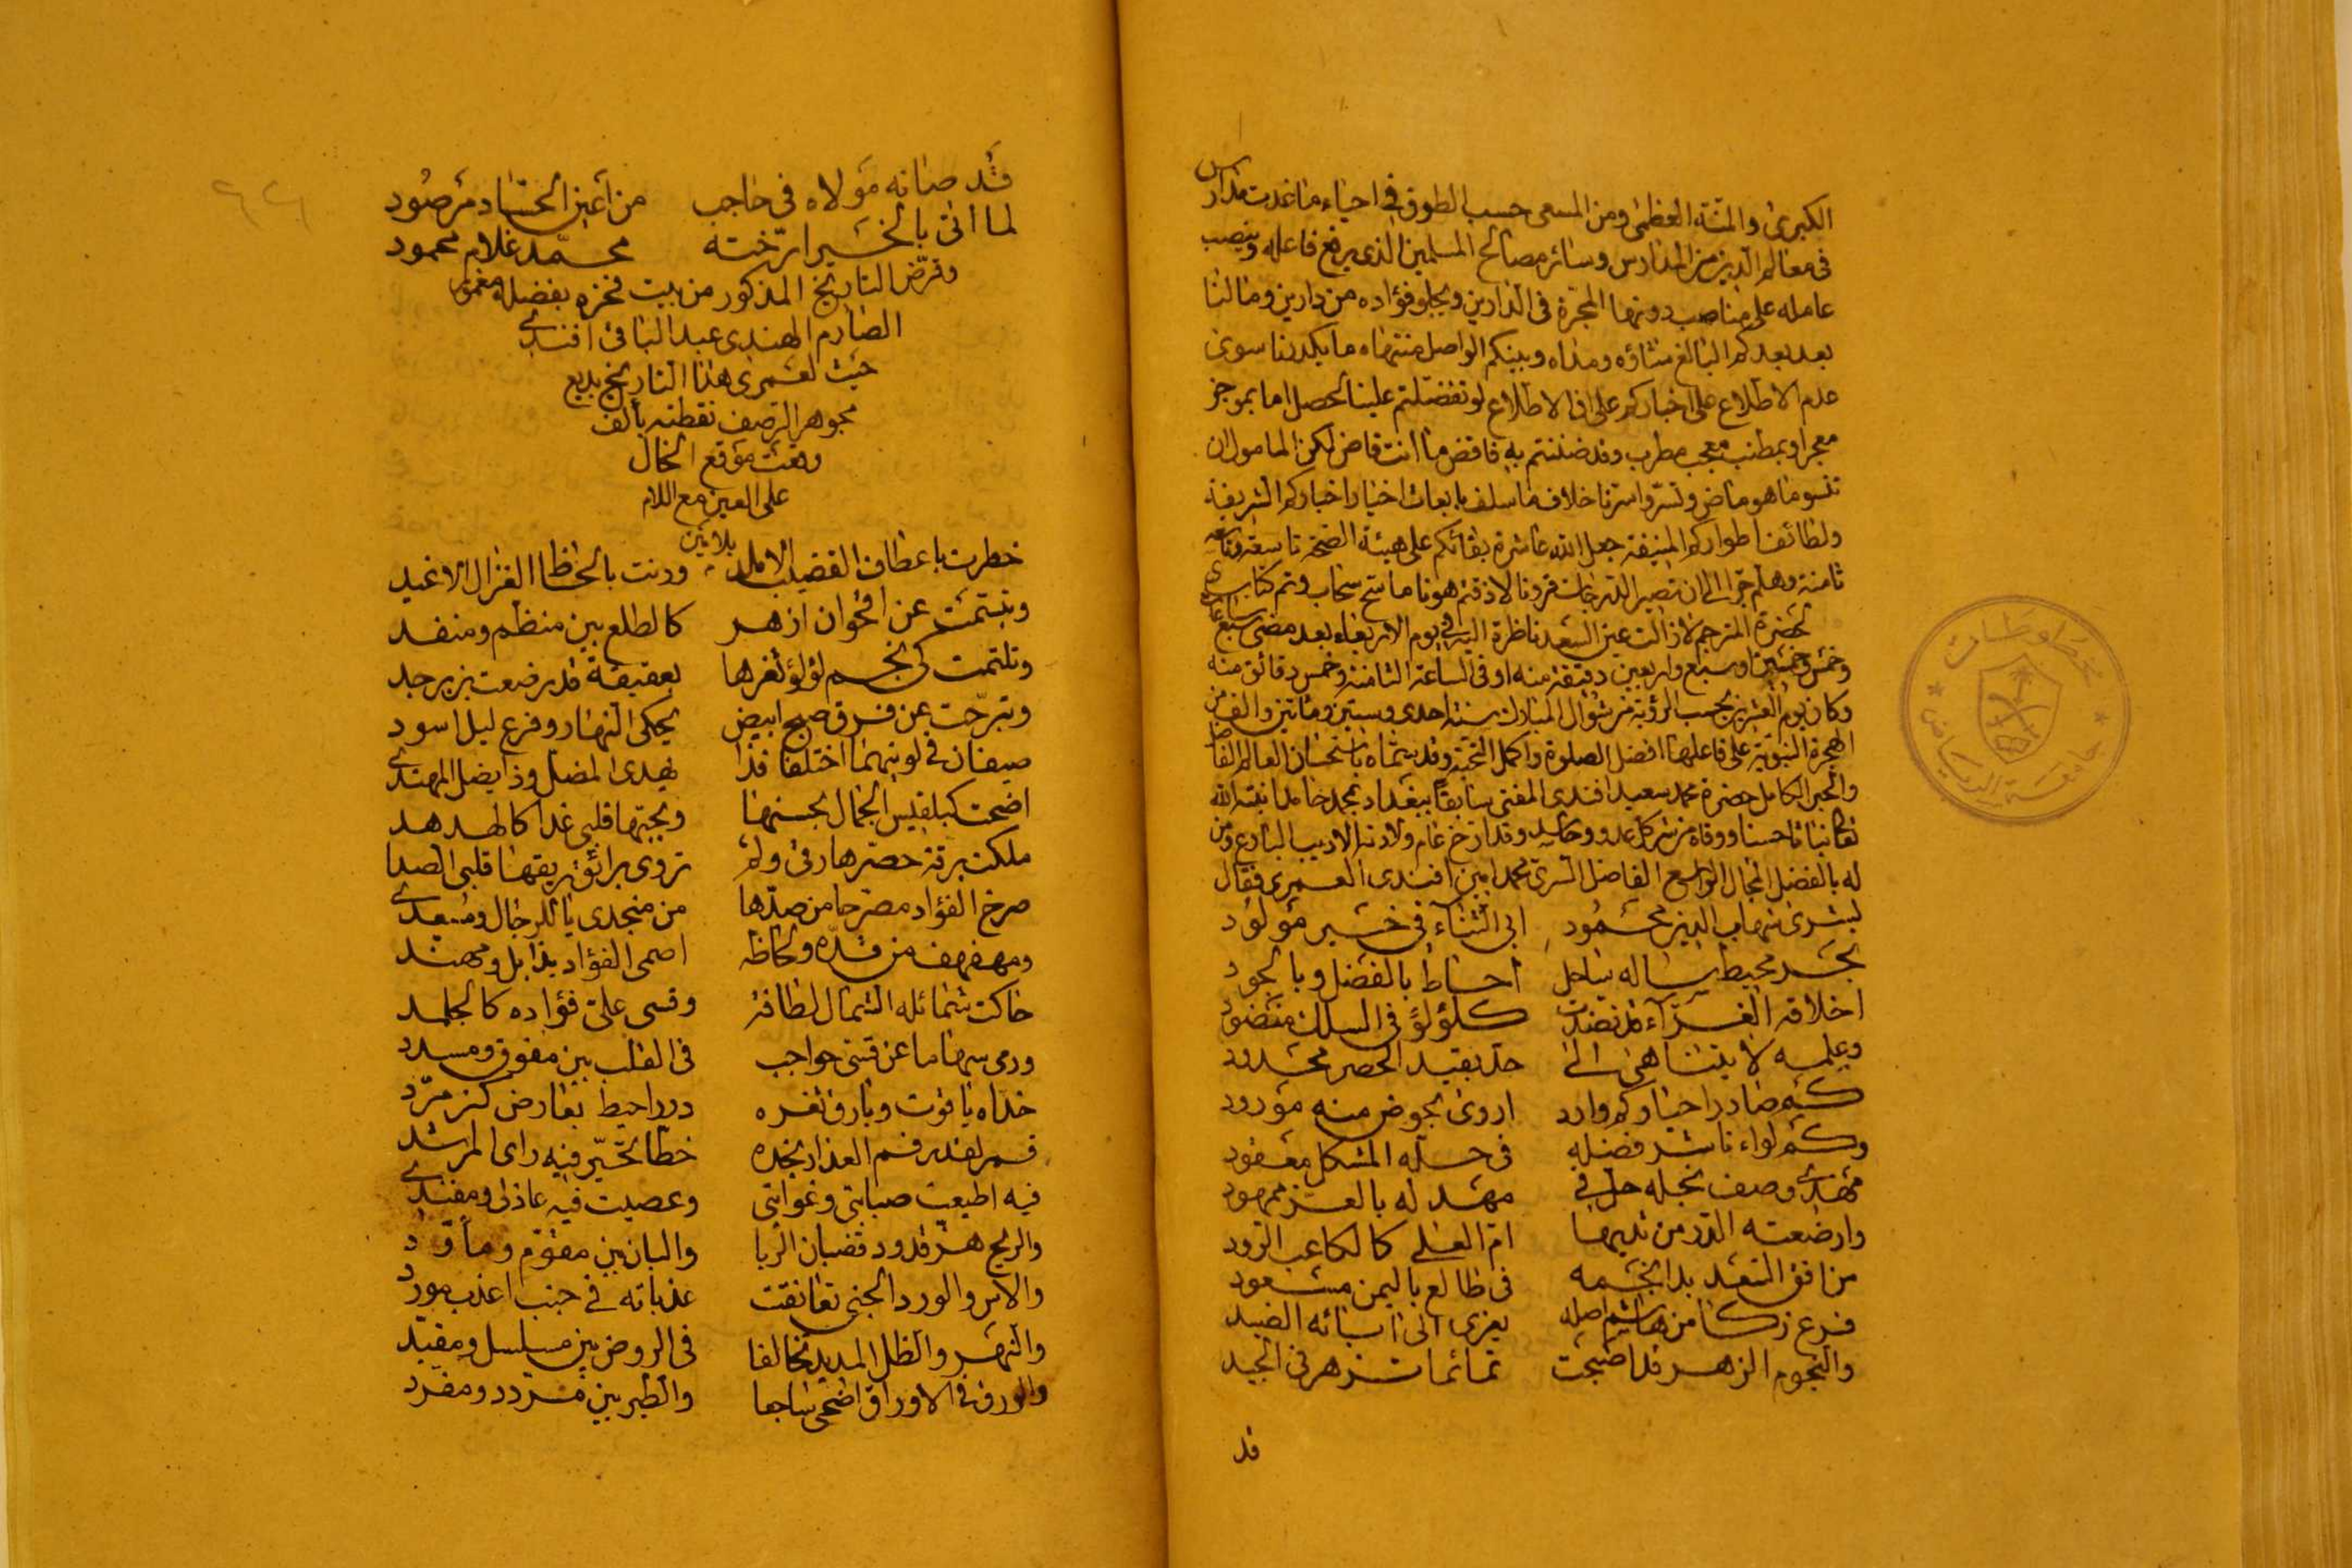 الكبرى والمنة العظمى ومن المسعى حسب الطوق في احياء ما غدت مدارس
في معالم الدين من المدارس وسائر مصالح المسلمين الذي يرفع فاعله وينصب
عامله على مناصب دونها المجرة في الدارين ويجلو فؤاده من دارين وما لنا
بعد بعدكم البالغ منتاؤه ومداه وبينكم الواصل منتهاه ما يكدرنا سوى
عدم الاطلاع على اخباركم على ان الاطلاع لو تفضلتم علينا لحصل اما بموجز
معجز او بمطنب معجب مطرب وقد ضننتم به فاقض ما انت قاض لكن المامول ان
تنسوما هو ماض وتسروا سرنا خلاف ما سلف بابعاث اخبار اخباركم الشريفة
ولطائف اطواركم المنيفة جعل الله عاشرة بقائكم على هيئة الضخة تاسعة وتاسعه
ثامنة وهلم جرا الى ان تصير الدرجات قرونا لا ذقتم هونا ما سح سحاب وتم كتاب
لحضرة المترجم لا زالت عين السعد ناظرة اليه في يوم الاربعاء بعد مضي سبع ساعات
وخمس وخمسين او سبع واربعين دقيقة منه او في الساعة الثامنة وخمس دقائق منه
وكان يوم العشرين بحسب الرؤية من شوال المبارك سنة احدى وستين ومائتين والف من
الهجرة النبوية على فاعلها افضل الصلوة واكمل التحية وقد سماه باستحسان العالم الفاضل
والحبر الكامل حضرة محمد سعيد افندي المفتي سابقا ببغداد بمحمد حامد انبته الله
تعالى نباتا حسنا ووقاه من شر كل عدو وحاسد وقد ارخ عام ولادته الاديب البارع ومن
له بالفضل المجال الواسع الفاضل السري محمد امين افندي العمري فقال
بشرى شهاب الدين محمود ابي الثناء في خير مولود
بحر محيط ماله ساحل احاط بالفضل وبالجود
اخلاقه الغراء قد نضدت كلؤلؤ في السلك منضود
وعلمه لا يتناهى الى حد بقيد الحصر محدود
كم صادر احيا وكم وارد اروى بحوض منه مورود
وكم لواء ناشر فضله في حله المشكل معقود
مهدي وصف نجله حل في مهد له بالعز ممهود
وارضعته الدر من ثديها ام العلى كالكاعب الرود
من افق السعد بدا نجمه في طالع باليمن مسعود
فرع زكا من هاشم اصله يعزى الى ابائه الصيد
والنجوم الزهر قد اصبحت تمائما تزهر في الجيد
قد
قد صانه مولاه في حاجب من اعين الحساد مرصود
لما اتى بالخير ارخته محمد غلام محمود
وقرض التاريخ المذكور من بيت فخره بفضله معمور
الصارم الهندي عبد الباقي افندي
حيث لعمري هذا التاريخ بديع
بجوهر الرصف نقطته بالف
وقعت موقع الخال
على العين مع اللام
بلا مين
خطرت باعطاف القضيب الاملد ورنت بالحاظ الغزال الاغيد
وتبسمت عن اقحوان ازهر كالطلع بين منظم ومنضد
وتلثمت كي نجم لؤلؤ ثغرها بعقيقة قد رضعت بزبرجد
وتبرجت عن فرق صبح ابيض يحكي النهار وفرع ليل اسود
صيفان في لونيهما اختلفا فذا يهدي المضل وذا يضل المهتدي
اضحت كبلقيس الجمال بحسنها وبحبها قلبي غدا كالهدهد
ملكت برقة خصرها رقي ولم تروي برائق ريقها قلبي الصدا
صرخ الفؤاد مصرحا من صدها من منجدي يا للرجال ومسعدي
ومهفهف من قده ولحاظه اصمى الفؤاد بذابل ومهند
حاكت شمائله الشمال لطافة وقسى علي فؤاده كالجلمد
ورمى سهاما عن قسي حواجب في القلب بين مفوق ومسدد
خداه ياقوت وبارق ثغره درر احيط بعارض كزمرد
قمر لقد رقم العذار بخده خطا تحير فيه راي المرشد
فيه اطيعت صبابتي وغوايتي وعصيت فيه عاذلي ومفندي
والريح هز قدود قضبان الربا والبان بين مقوم ومأود
والاس والورد الجني تعانقت عذباته في جنب اعذب مورد
والنهر والظل المديد تخالفا في الروض بين مسلسل ومقيد
والورق في الاوراق اضحى ساجعا والطير بين مردد ومغرد
مخطوطات
جامعة الرياض